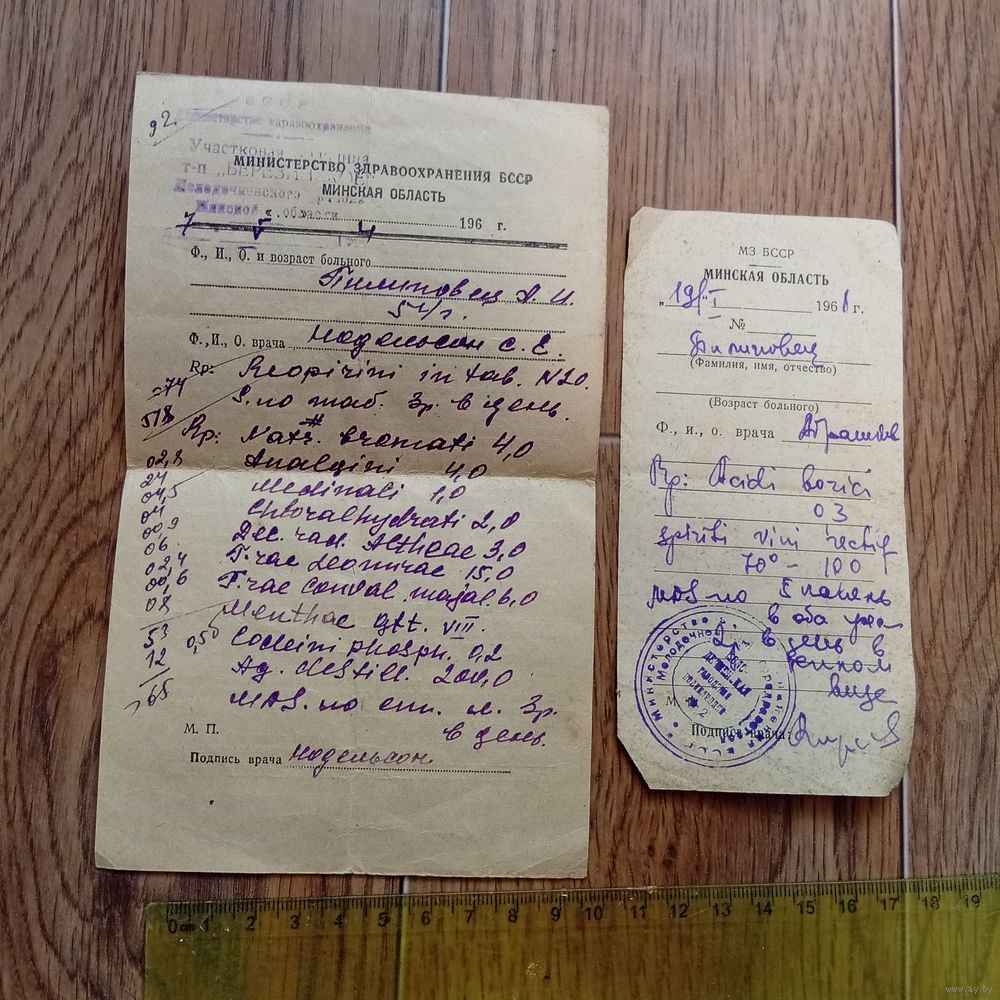 92
СССР
Министерство здравоохранения
Участковая
т-п „БЕРЕЗИ
Молодечненского района
Минской области
МИНИСТЕРСТВО ЗДРАВООХРАНЕНИЯ БССР
МИНСКАЯ ОБЛАСТЬ
7 V 4 196 г.
Ф., И., О. и возраст больного
Пилиповец А. И.
54 г.
Ф.,И., О. врача Нодельсон С. Е.
Rp: Reopirini in tab. N20.
S. по таб. 3р. в день.
Rp: Natr. bromati 4,0
Analgini 4,0
Medinali 1,0
Chloralhydrati 2,0
Dec. rad. Altheae 3,0
T-rae Leonurae 15,0
T-rae Conval. majal. 6,0
Menthae gtt. VIII.
Codeini phosph. 0,2
Aq. destill. 200,0
MDS. по ст. л. 3р.
в день.
74
518
02,8
24
04,5
04
00,9
06
02,4
00,6
08
53
0,50
12
65
М. П.
Подпись врача Нодельсон
МЗ БССР
МИНСКАЯ ОБЛАСТЬ
„19“ I 1961 г.
№
Пилиповец
(Фамилия, имя, отчество)
(Возраст больного)
Ф., и., о. врача
Rp: Acidi borici
03
spiriti vini rectif
70° – 100
MDS по 5 капель
в оба уха
2 р в день в
теплом
виде
М
Подпись врача:
Министерство здравоохранения БССР
Молодечненская
2
0 cm 1 2 3 4 5 6 7 8 9 10 11 12 13 14 15 16 17 18 19
www.ay.by